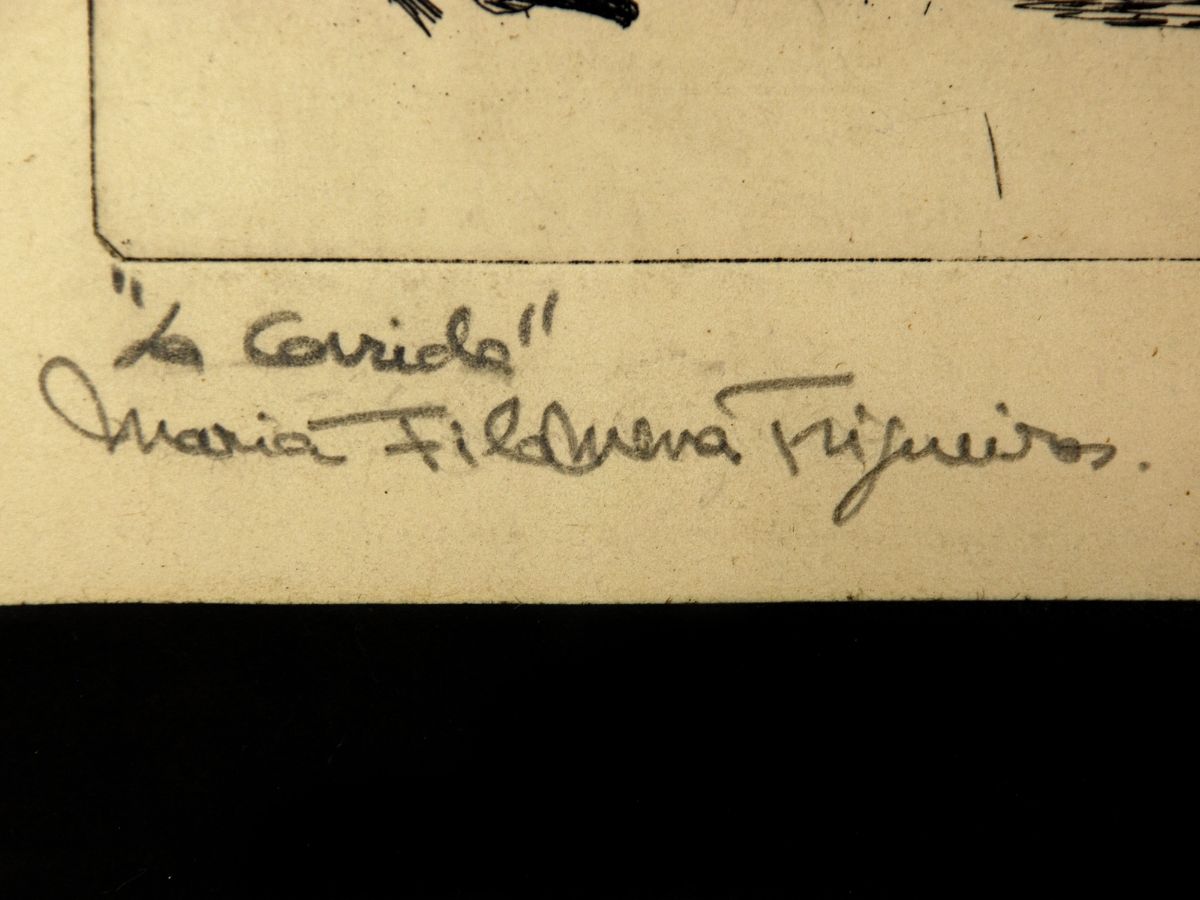 "La Corrida"
Maria Filomena Figueiras.